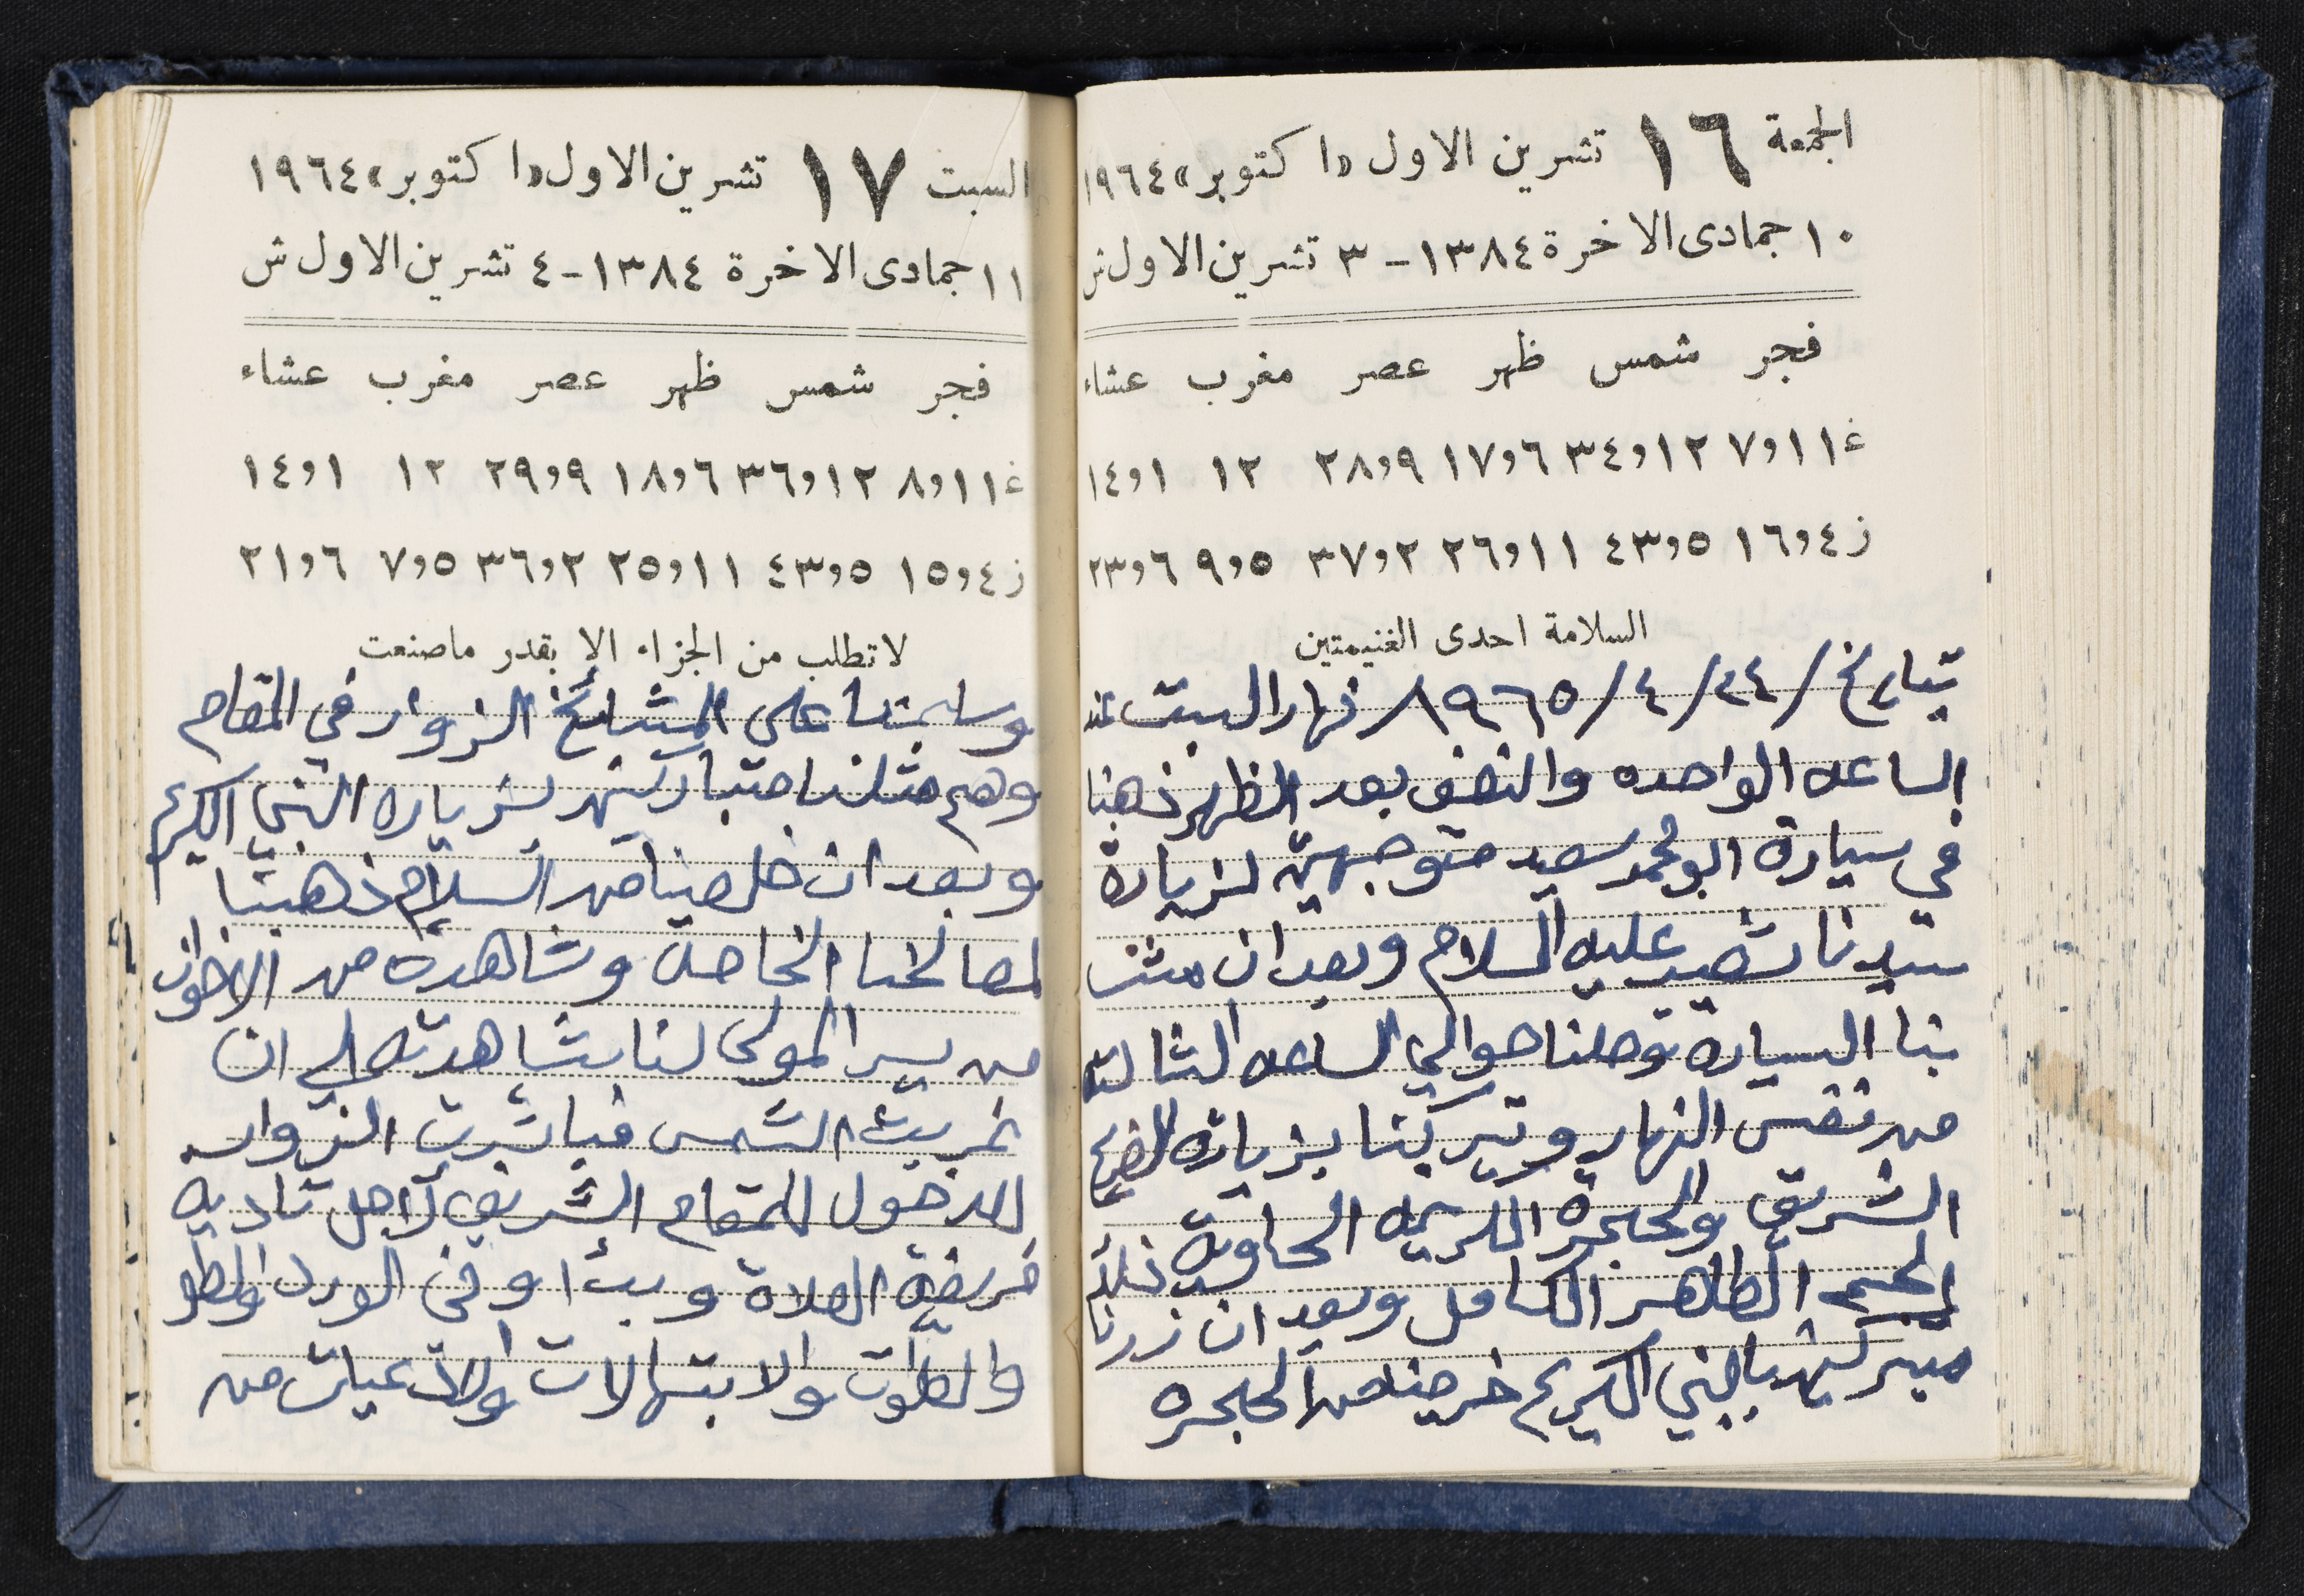 الجمعة ١٦ تشرين الاول «اكتوبر» ١٩٦٤
١٠ جمادى الاخرة ١٣٨٤ - ٣ تشرين الاول ش
فجر شمس ظهر عصر مغرب عشاء
غ ١١و٧ ١٢و٣٤ ٦و١٧ ٩و٢٨ ١٢ ١و١٤
ز ٤و١٦ ٥و٤٣ ١١و٢٦ ٢و٣٧ ٥و٩ ٦و٢٣
السلامة احدى الغنيمتين
بتاريخ / ٢٤ / ٤ / ١٩٦٥ / نهار السبت عند
الساعه الواحده والنصف بعد الظهر ذهبنا
في سيارة ابو محمد سعيد متوجهين لزيارة
سيدنا شعيب عليه السلام وبعد ان مشت
بنا السيارة توصلنا حوالي الساعه الثالثه
من نفس النهار وتبركنا بزيارة الضريح
الشريف والحجرة الكريمه الحاوية ذلك
الجسم الطاهر الكامل وبعد ان زرنا
متبركين بالنبي الكريم خرجنا من الحجره
السبت ١٧ تشرين الاول «اكتوبر» ١٩٦٤
١١ جمادى الاخرة ١٣٨٤ - ٤ تشرين الاول ش
فجر شمس ظهر عصر مغرب عشاء
غ ١١و٨ ١٢و٣٦ ٦و١٨ ٩و٢٩ ١٢ ١و١٤
ز ٤و١٥ ٥و٤٣ ١١و٢٥ ٢و٣٦ ٥و٧ ٦و٢١
لا تطلب من الجزاء الا بقدر ما صنعت
وسلمنا على المشائخ الزوار في المقام
وهم مثلنا متباركين لزيارة النبي الكريم
وبعد ان خلصنا من السلام ذهبنا
لمصالحنا الخاصة وشاهدة من الاخوان
من يسر المولى لنا بشاهدته الي ان
غربت الشمس فباشرت الزوار
للدخول للمقام الشريف لاجل تاديه
فريضة الصلاة وبدأو في الورد
والابتهالات من